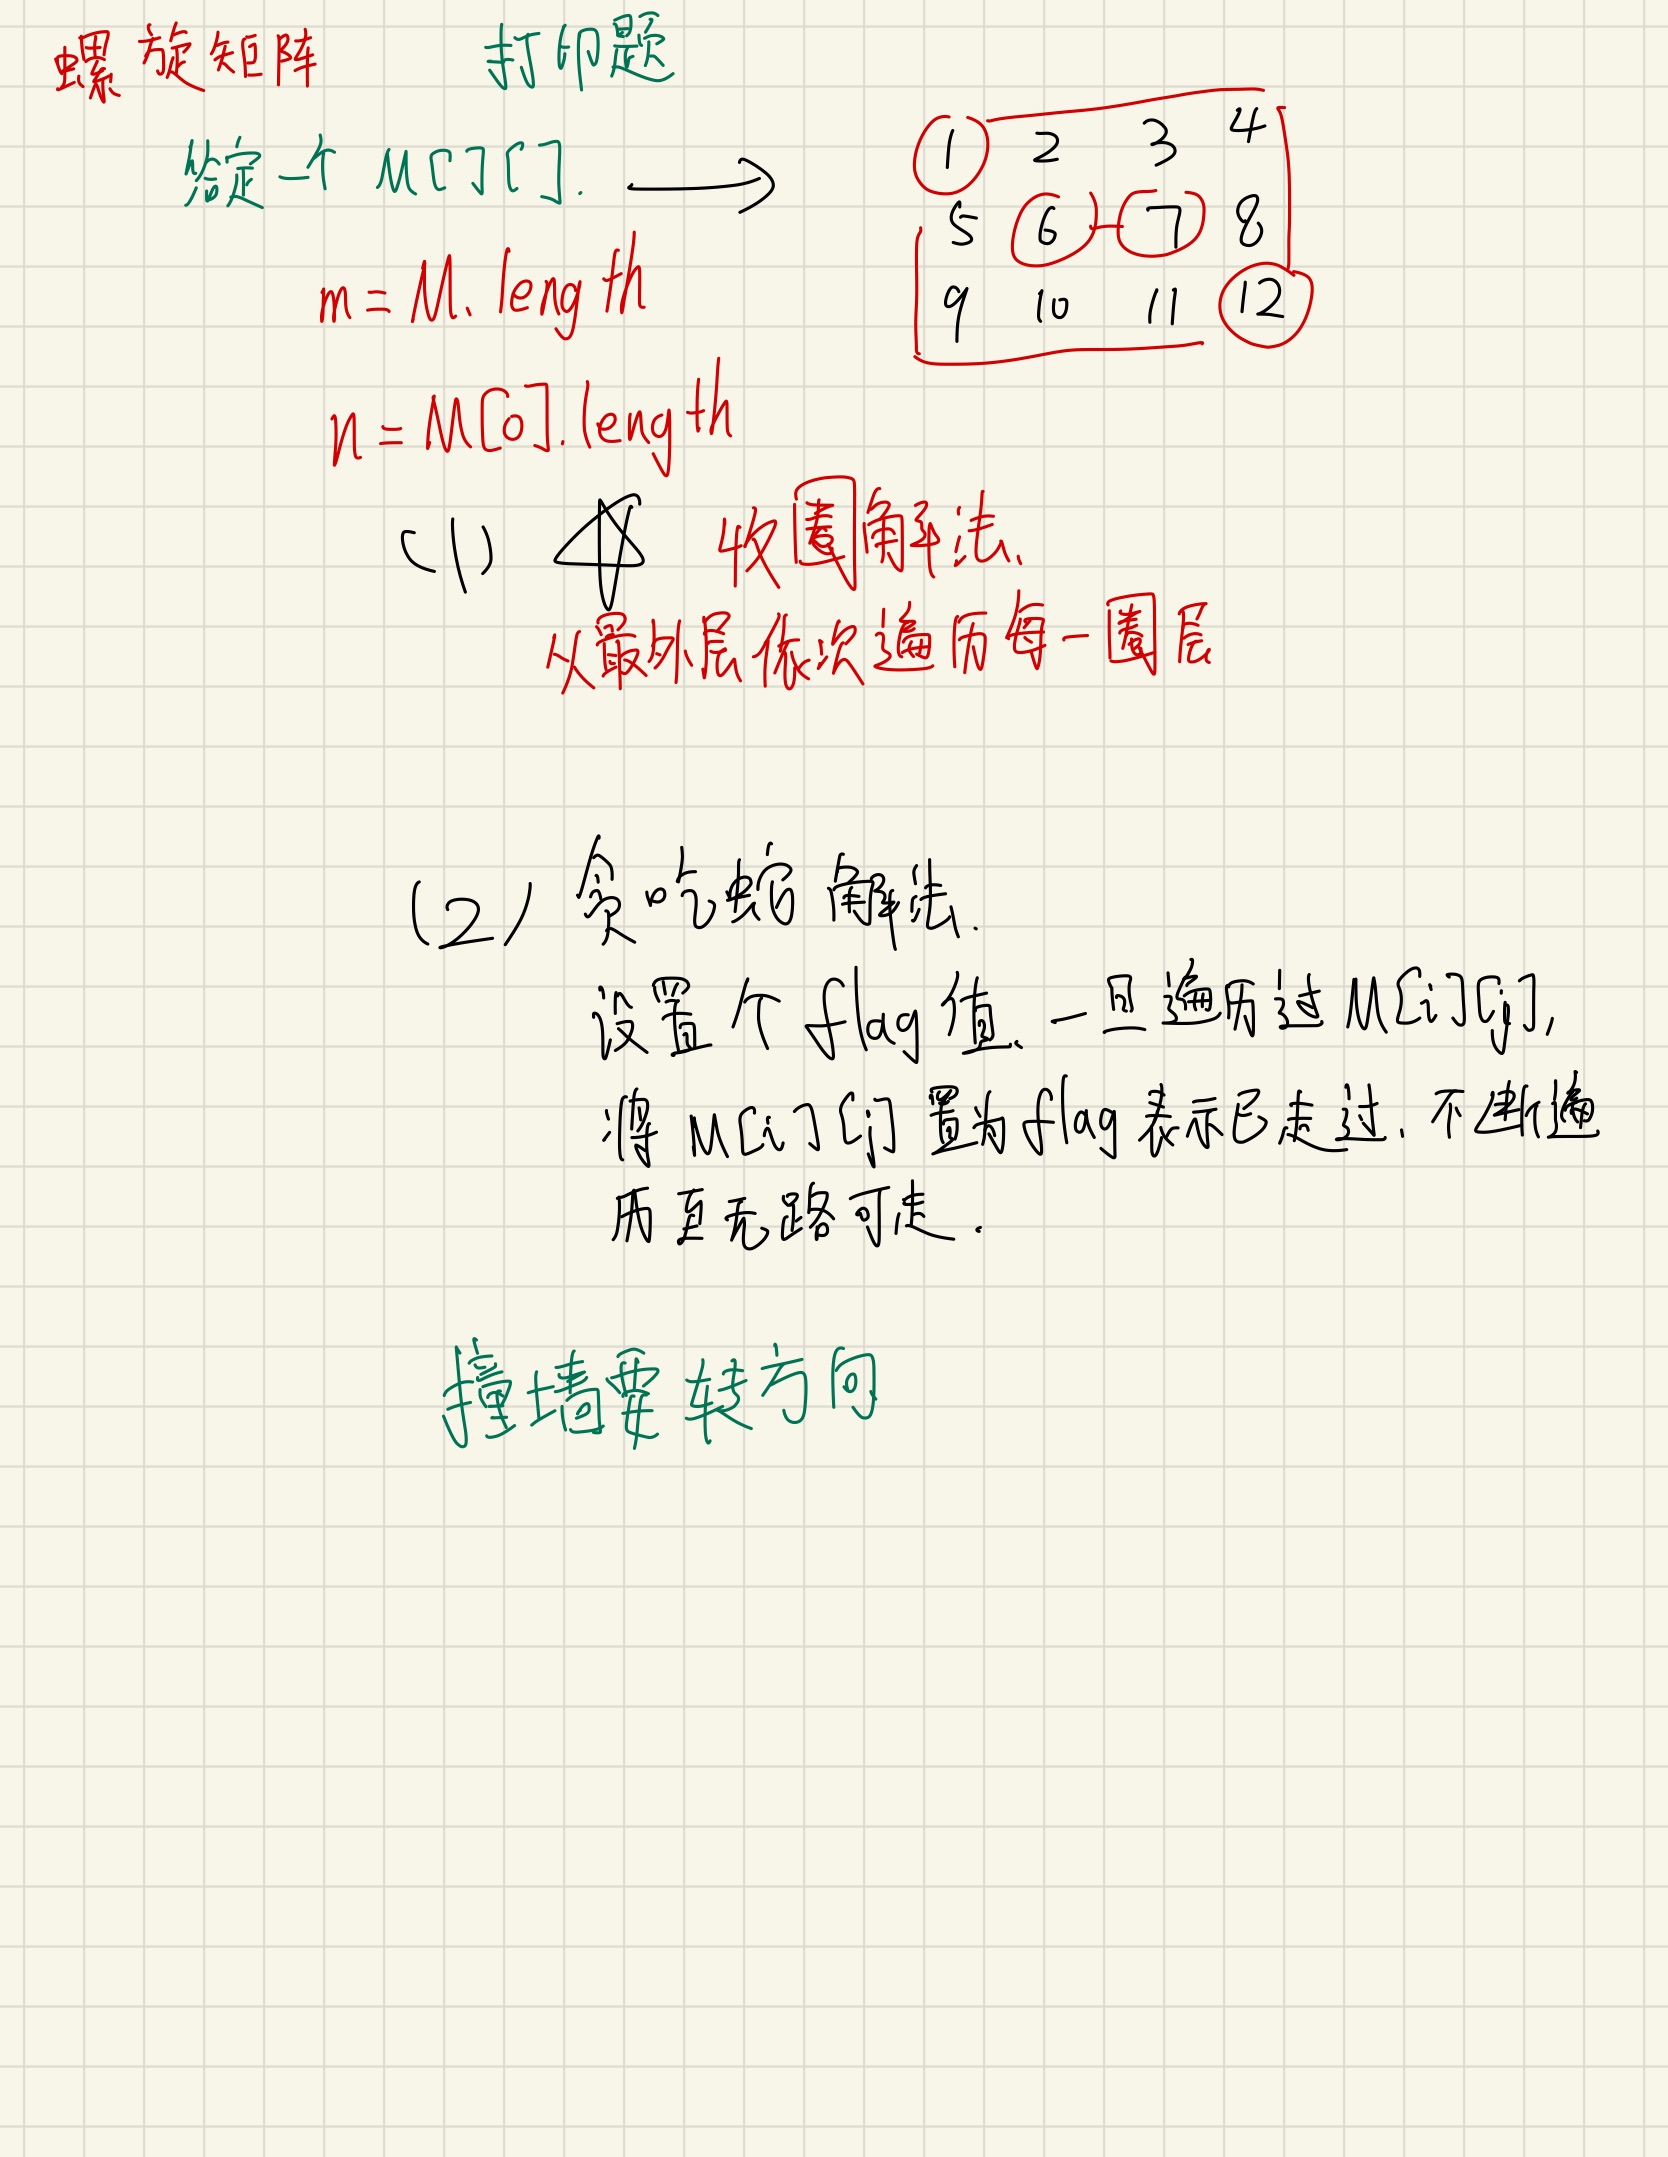 螺旋矩阵 打印题
给定一个 M[][].
1 2 3 4
5 6 7 8
9 10 11 12
m = M.length
n = M[0].length
(1) 收圈解法.
从最外层依次遍历每一圈层
(2) 贪吃蛇解法.
设置个 flag 值. 一旦遍历过 M[i][j],
将 M[i][j] 置为 flag 表示已走过. 不断遍
历直无路可走.
撞墙要转方向